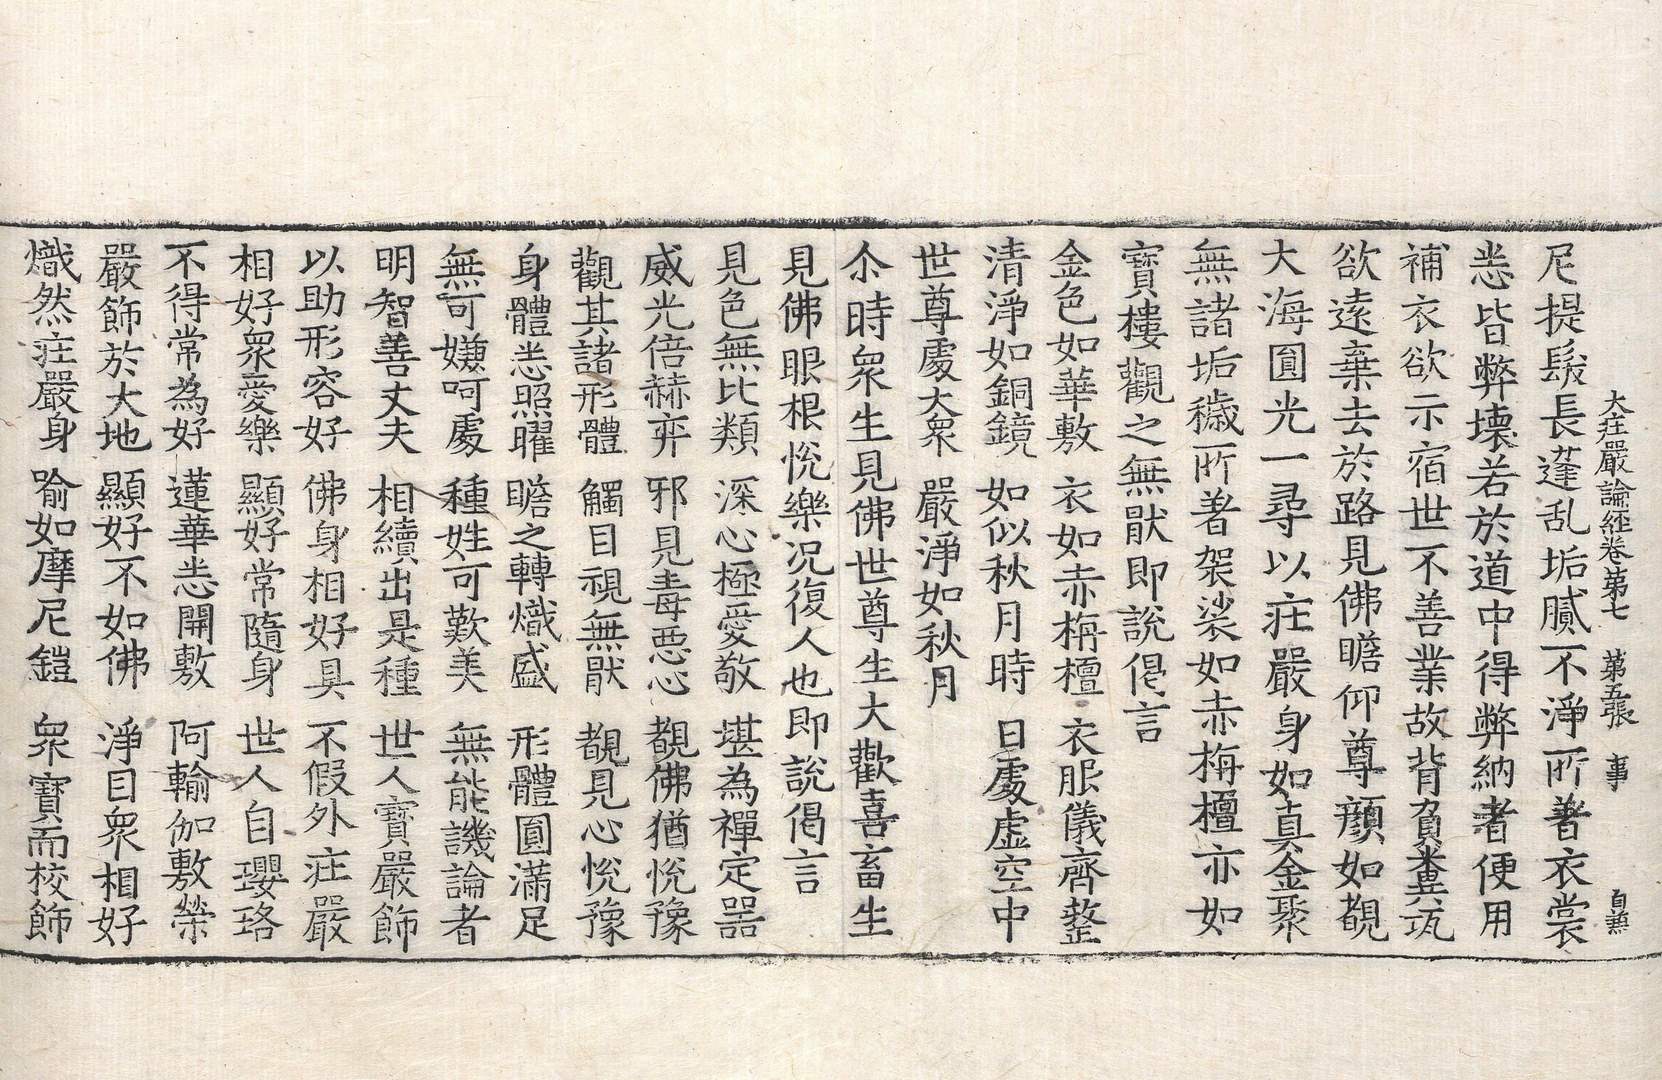 大莊嚴論經卷第七 第五張 事
尼提髮長蓬乱垢膩不淨所著衣裳
悉皆弊壞若於道中得弊納者便用
補衣欲示宿世不善業故背負糞瓨
欲遠棄去於路見佛瞻仰尊顔如覩
大海圓光一尋以庄嚴身如真金聚
無諸垢穢所著袈裟如赤栴檀亦如
寶樓觀之無猒即說偈言
金色如華敷 衣如赤栴檀 衣服儀齊整
清淨如銅鏡 如似秋月時 日處虛空中
世尊處大衆 嚴淨如秋月
尒時衆生見佛世尊生大歡喜畜生
見佛眼根悅樂况復人也即說偈言
見色無比類 深心極愛敬 堪為禪定器
威光倍赫弈 邪見毒惡心 覩佛猶悅豫
觀其諸形體 觸目視無猒 覩見心悅豫
身體悉照曜 瞻之轉熾盛 形體圓滿足
無可嫌呵處 種姓可歎美 無能譏論者
明智善丈夫 相續出是種 世人寶嚴飾
以助形容好 佛身相好具 不假外庄嚴
相好衆愛樂 顯好常隨身 世人自瓔珞
不得常為好 蓮華悉開敷 阿輸伽敷榮
嚴飾於大地 顯好不如佛 淨目衆相好
熾然庄嚴身 喻如摩尼鎧 衆寶而校飾